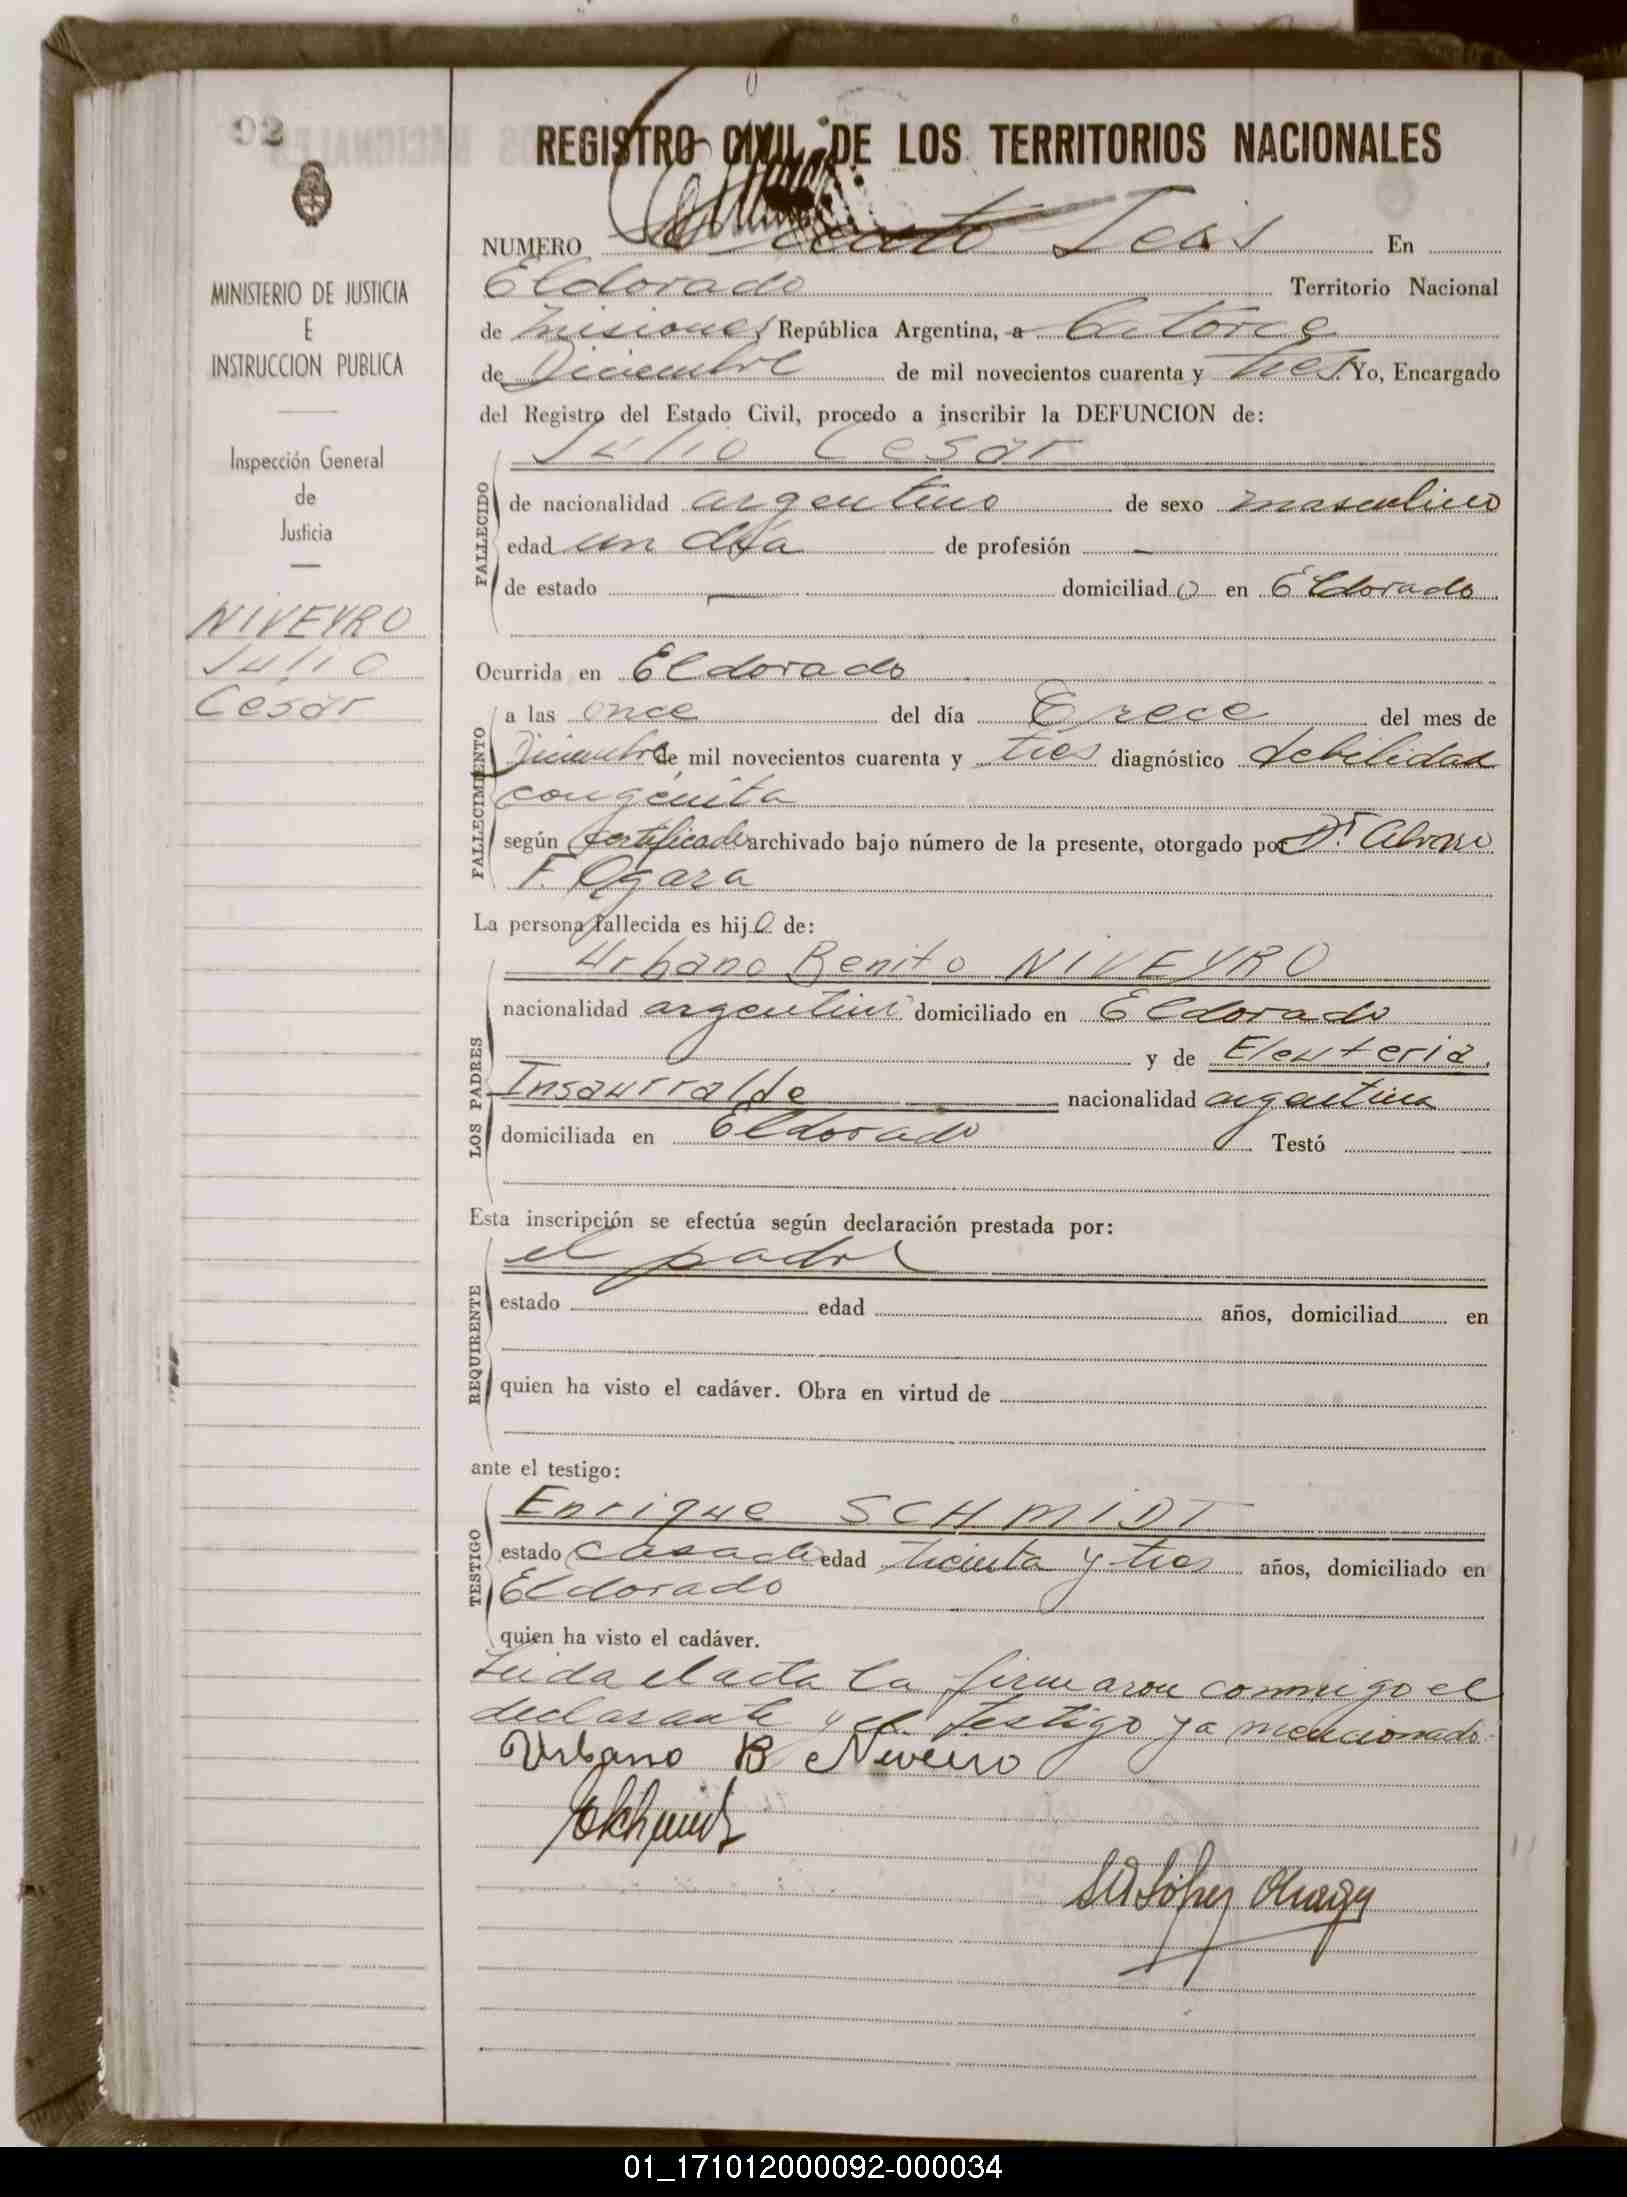 92
REGISTRO CIVIL DE LOS TERRITORIOS NACIONALES
NUMERO Ciento Seis En
Eldorado Territorio Nacional
de Misiones República Argentina, a Catorce
de Diciembre de mil novecientos cuarenta y tres. Yo, Encargado
del Registro del Estado Civil, procedo a inscribir la DEFUNCION de:
MINISTERIO DE JUSTICIA
E
INSTRUCCION PUBLICA
Inspección General
de
Justicia
NIVEYRO
Julio
César
FALLECIDO
Julio César
de nacionalidad argentino de sexo masculino
edad un día de profesión —
de estado — domiciliado en Eldorado
Ocurrida en Eldorado
FALLECIMIENTO
a las once del día Trece del mes de
Diciembre de mil novecientos cuarenta y tres diagnóstico debilidad
congénita
según certificado archivado bajo número de la presente, otorgado por Dr. Alvaro
F. Ogara
La persona fallecida es hijo de:
LOS PADRES
Urbano Benito NIVEYRO
nacionalidad argentino domiciliado en Eldorado
y de Eleuteria
Insaurralde nacionalidad argentina
domiciliada en Eldorado Testó
Esta inscripción se efectúa según declaración prestada por:
REQUIRENTE
el padre
estado edad años, domiciliad en
quien ha visto el cadáver. Obra en virtud de
ante el testigo:
TESTIGO
Enrique SCHMIDT
estado casado edad treinta y tres años, domiciliado en
Eldorado
quien ha visto el cadáver.
Leida el acta la firmaron conmigo el
declarante y el testigo ya mencionado.
Urbano B Niveiro
ESchmidt
López
01_171012000092-000034